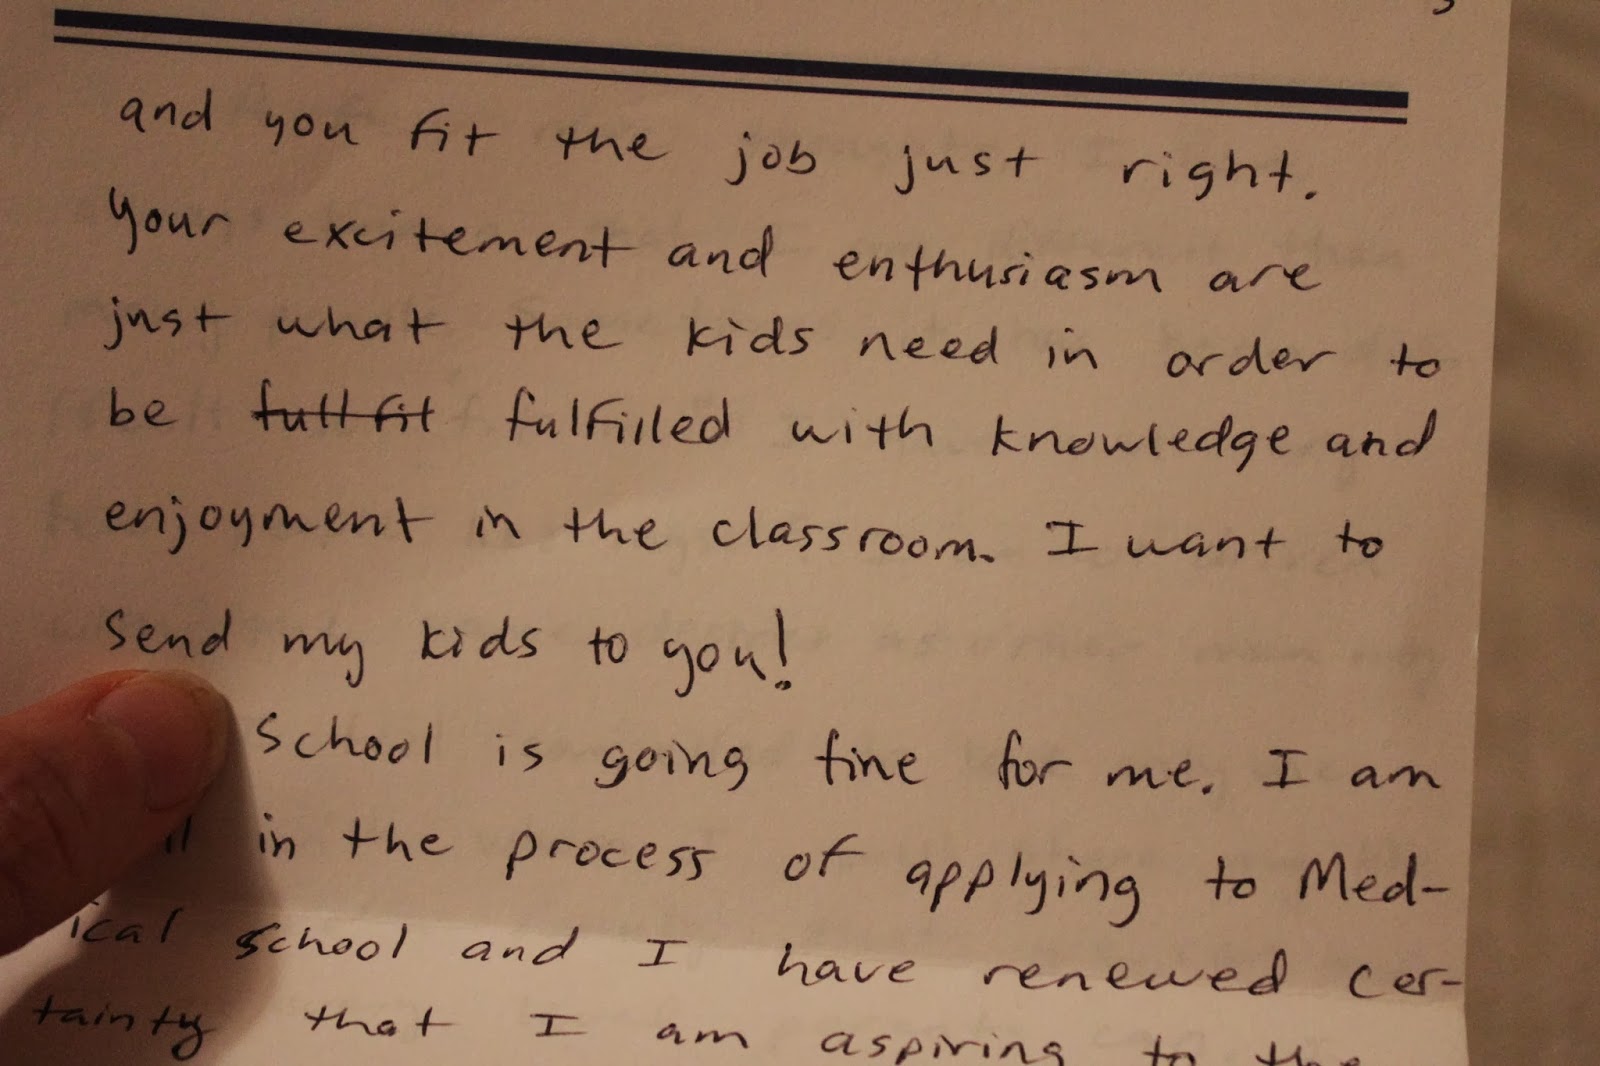 and you fit the job just right.
Your excitement and enthusiasm are
just what the kids need in order to
be fullfit fulfilled with knowledge and
enjoyment in the classroom. I want to
send my kids to you!
School is going fine for me. I am
in the process of applying to Med-
ical school and I have renewed cer-
tainty that I am aspiring to the